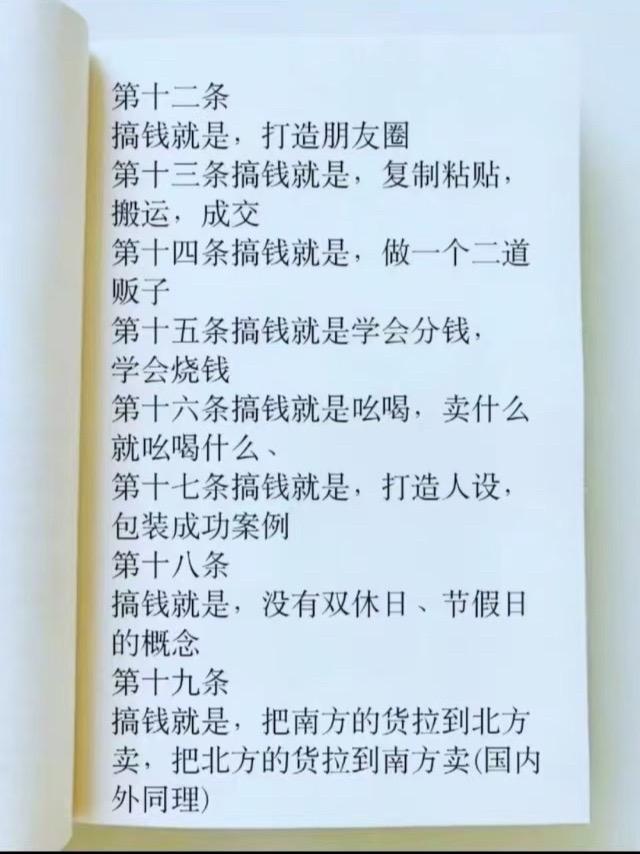 第十二条
搞钱就是，打造朋友圈
第十三条搞钱就是，复制粘贴，
搬运，成交
第十四条搞钱就是，做一个二道
贩子
第十五条搞钱就是学会分钱，
学会烧钱
第十六条搞钱就是吆喝，卖什么
就吆喝什么、
第十七条搞钱就是，打造人设，
包装成功案例
第十八条
搞钱就是，没有双休日、节假日
的概念
第十九条
搞钱就是，把南方的货拉到北方
卖，把北方的货拉到南方卖(国内
外同理)